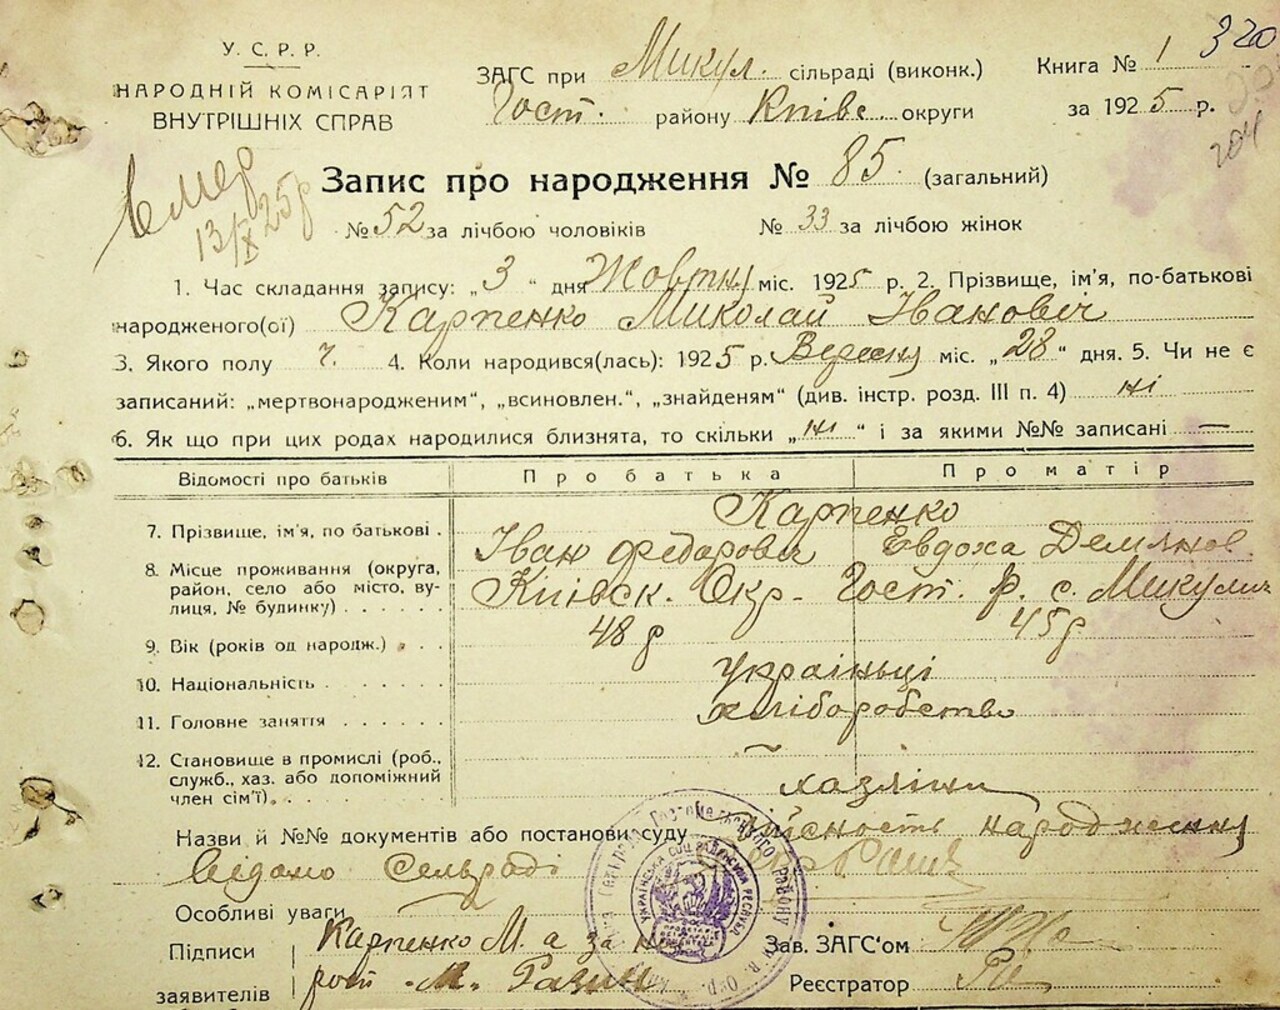 У. С. Р. Р.
НАРОДНІЙ КОМІСАРІЯТ
ВНУТРІШНІХ СПРАВ
ЗАГС при Микул. сільраді (виконк.)
Гост. району Київс. округи
Книга № 1
за 1925 р.
320
204
Вмер
13/IX 25р
Запис про народження № 85. (загальний)
№ 52 за лічбою чоловіків № 33 за лічбою жінок
1. Час складання запису: „3“ дня Жовтня міс. 1925 р. 2. Прізвище, ім'я, по-батькові
народженого(ої) Карпенко Миколай Іванович
3. Якого полу ч. 4. Коли народився(лась): 1925 р. Вересня міс. „28“ дня. 5. Чи не є
записаний: „мертвонародженим“, „всиновлен.“, „знайденям“ (див. інстр. розд. III п. 4) ні
6. Як що при цих родах народилися близнята, то скільки „ні“ і за якими №№ записані —
Відомості про батьків Про батька Про матір
7. Прізвище, ім'я, по батькові . Карпенко
Іван Федорович Евдоха Демянов.
8. Місце проживання (округа,
район, село або місто, ву-
лиця, № будинку) . . . . . . Київск. Окр- Гост. р. с. Микулич
9. Вік (років од народж.) . . . 48 р 45 р
10. Національність . . . . . . . україньці
11. Головне заняття . . . . . . хліборобство
12. Становище в промислі (роб.,
служб., хаз. або допоміжний
член сім'ї). . . . . . . . . . хазяіни
Назви й №№ документів або постанови суду дійсность народження
відомо Сельраді
Особливі уваги
Підписи
заявителів
Карпенко М. а за
рост. М.
Зав. ЗАГС'ом
Реєстратор
УКРАЇНСЬКА СОЦ. РАДЯНСЬКА РЕСПУБЛ.